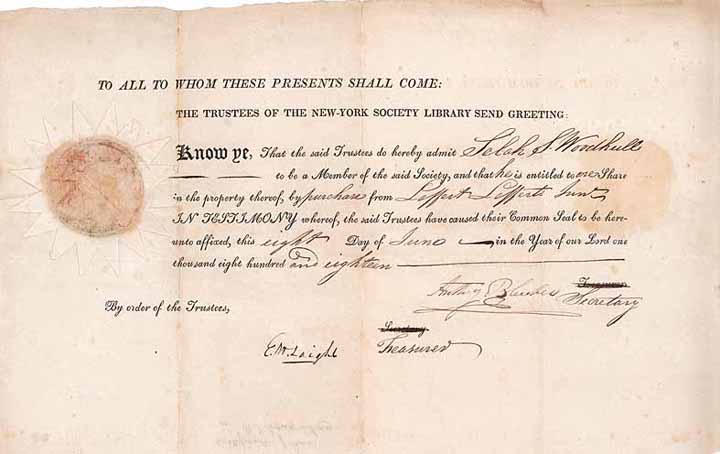 TO ALL TO WHOM THESE PRESENTS SHALL COME:
THE TRUSTEES OF THE NEW-YORK SOCIETY LIBRARY SEND GREETING:
Know ye, That the said Trustees do hereby admit Selah S Woodhull
to be a Member of the said Society, and that he is entitled to one Share
in the property thereof, by purchase from Leffert Lefferts Junr
IN TESTIMONY whereof, the said Trustees have caused their Common Seal to be here-
unto affixed, this eight Day of June in the Year of our Lord one
thousand eight hundred and eighteen
Treasurer
Secretary
By order of the Trustees,
Secretary
E. W. Laight Treasurer